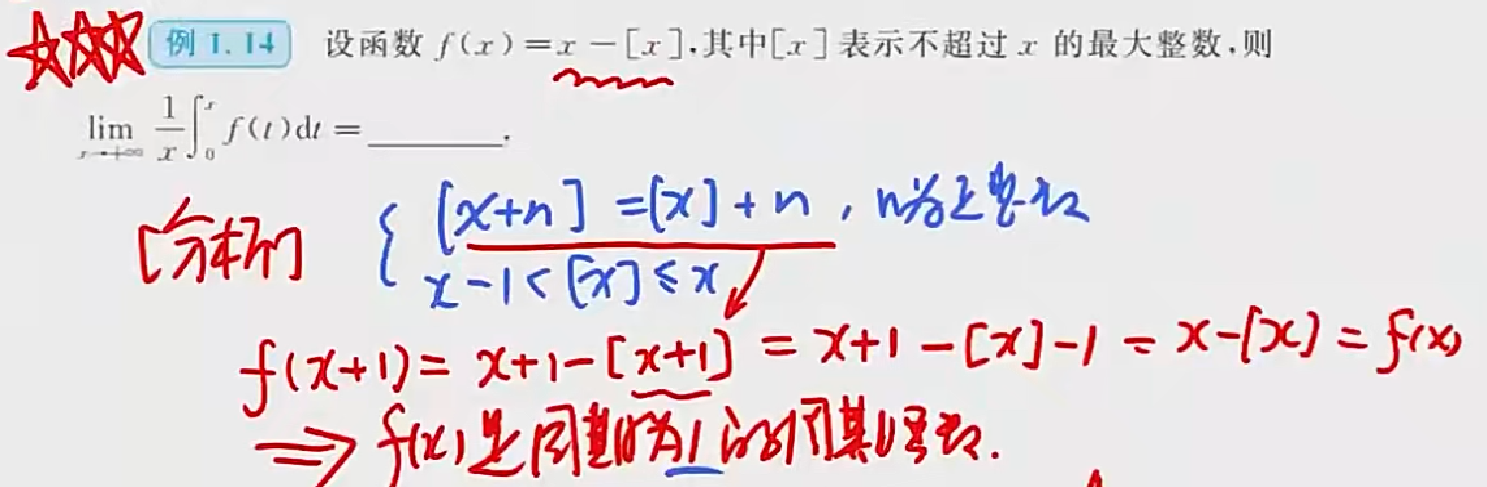 例 1.14 设函数 f(x)=x-[x],其中[x]表示不超过 x 的最大整数,则
lim x→+∞ 1/x ∫₀ˣ f(t)dt = ______.
[分析] { [x+n]=[x]+n, n为正整数
x-1<[x]≤x
f(x+1)= x+1-[x+1] = x+1-[x]-1 = x-[x] = f(x)
⇒ f(x)是周期为1的周期函数.